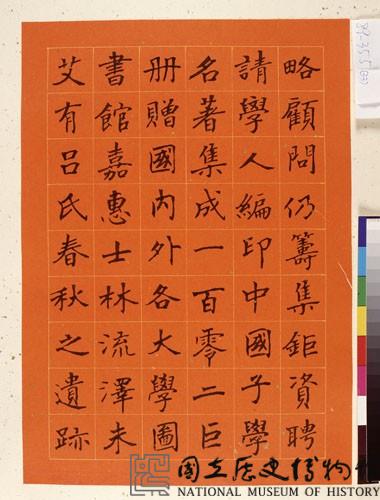 略顧問仍籌集鉅資聘
請學人編印中國子學
名著集成一百零二巨
册贈國內外各大學圖
書館嘉惠士林流澤未
艾有呂氏春秋之遺跡
國立歷史博物館
NATIONAL MUSEUM OF HISTORY